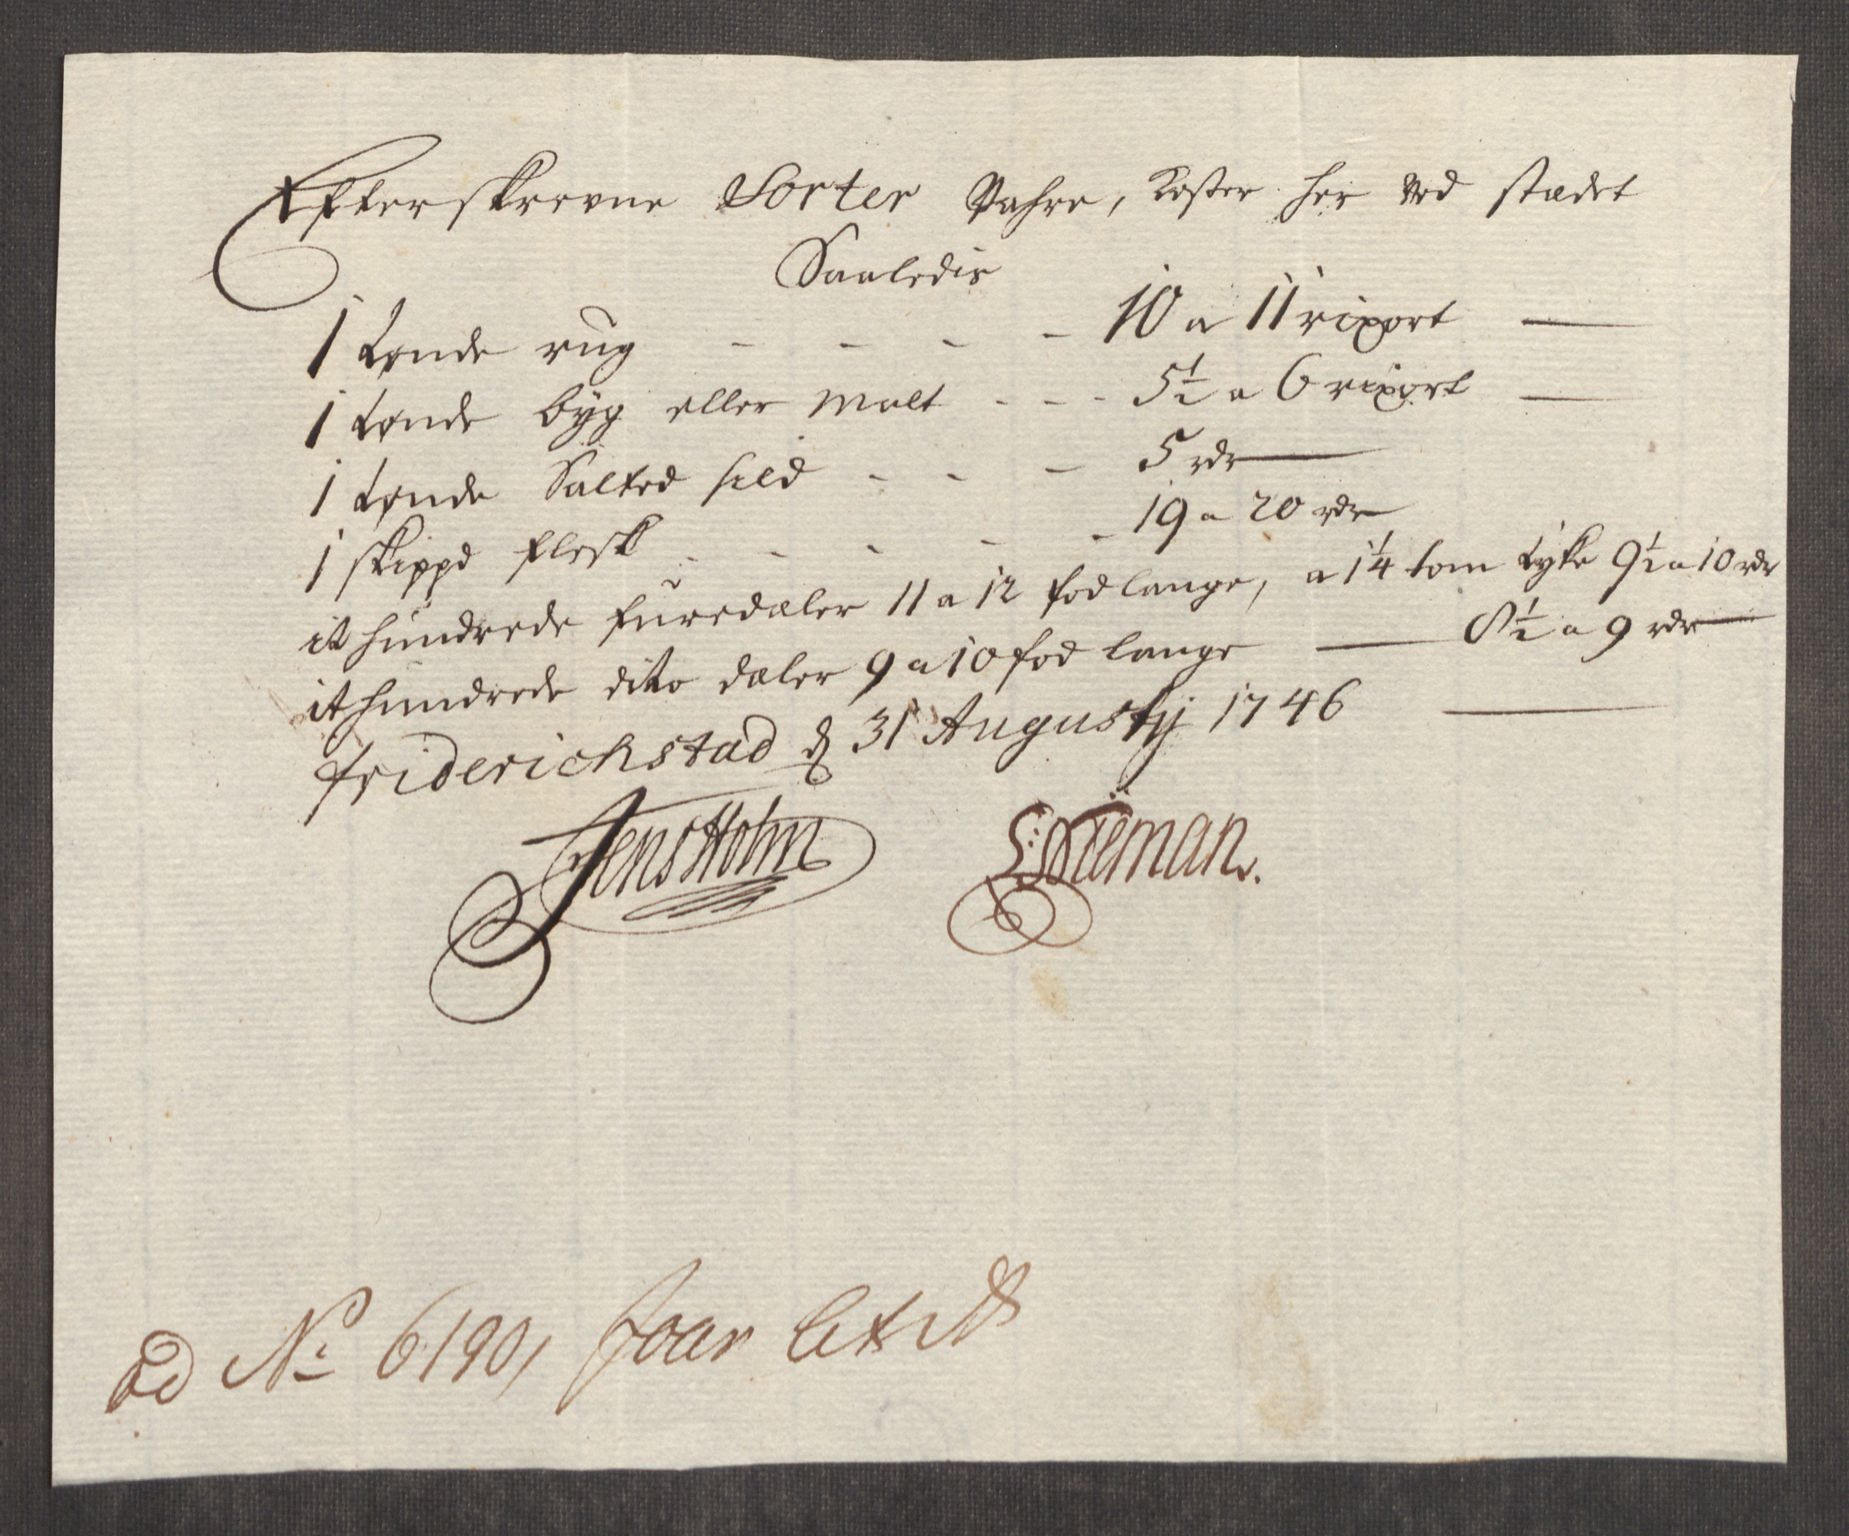 Efterskrevne Sorter Vahre, koster her ved stædet
Saaledis
1 tønde rug - - - - 10 a 11 rixort —
1 tønde byg eller malt - - - 5½ a 6 rixort —
1 tønde Salted sild - - - 5 rdr —
1 skippd flesk - - - - - 19 a 20 rdr
it hundrede furedæler 11 a 12 fod lange, a 1¼ tom tyke 9½ a 10 rdr
it hundrede dito dæler 9 a 10 fod lange — 8½ a 9 rdr
friderichstad d 31 Augustij 1746 —
Jens Holm
Nieman.
No 6190,